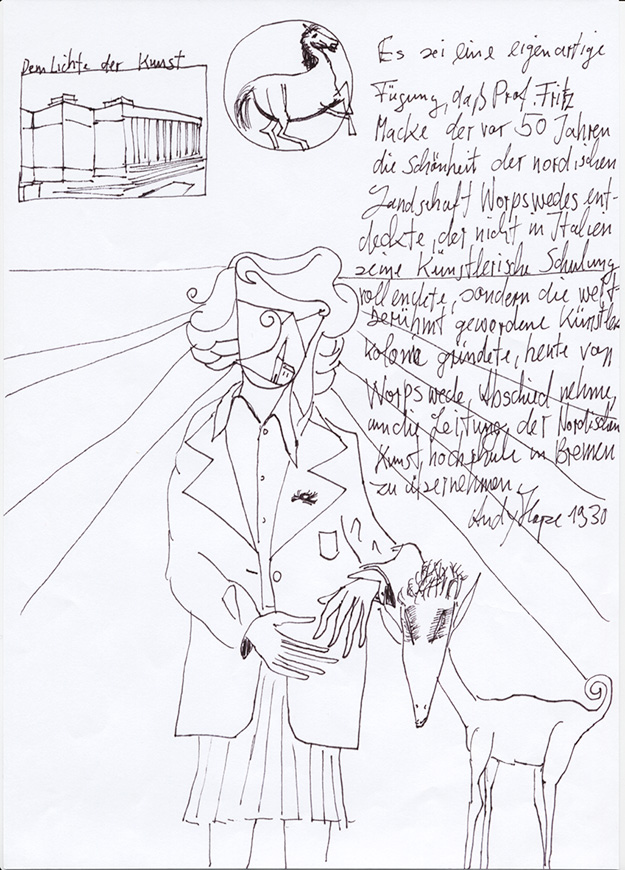 Dem Lichte der Kunst
Es sei eine eigenartige
Fügung, daß Prof. Fritz
Macke der vor 50 Jahren
die Schönheit der nordischen
Landschaft Worpswedes ent-
deckte, der nicht in Italien
seine Künstlerische Schulung
vollendete, sondern die welt-
berühmt gewordene Künstler
kolonie gründete, heute von
Worpswede, Abschied nehme,
um die Leitung der Nordischen
Kunsthochschule in Bremen
zu übernehmen
Andy 1930